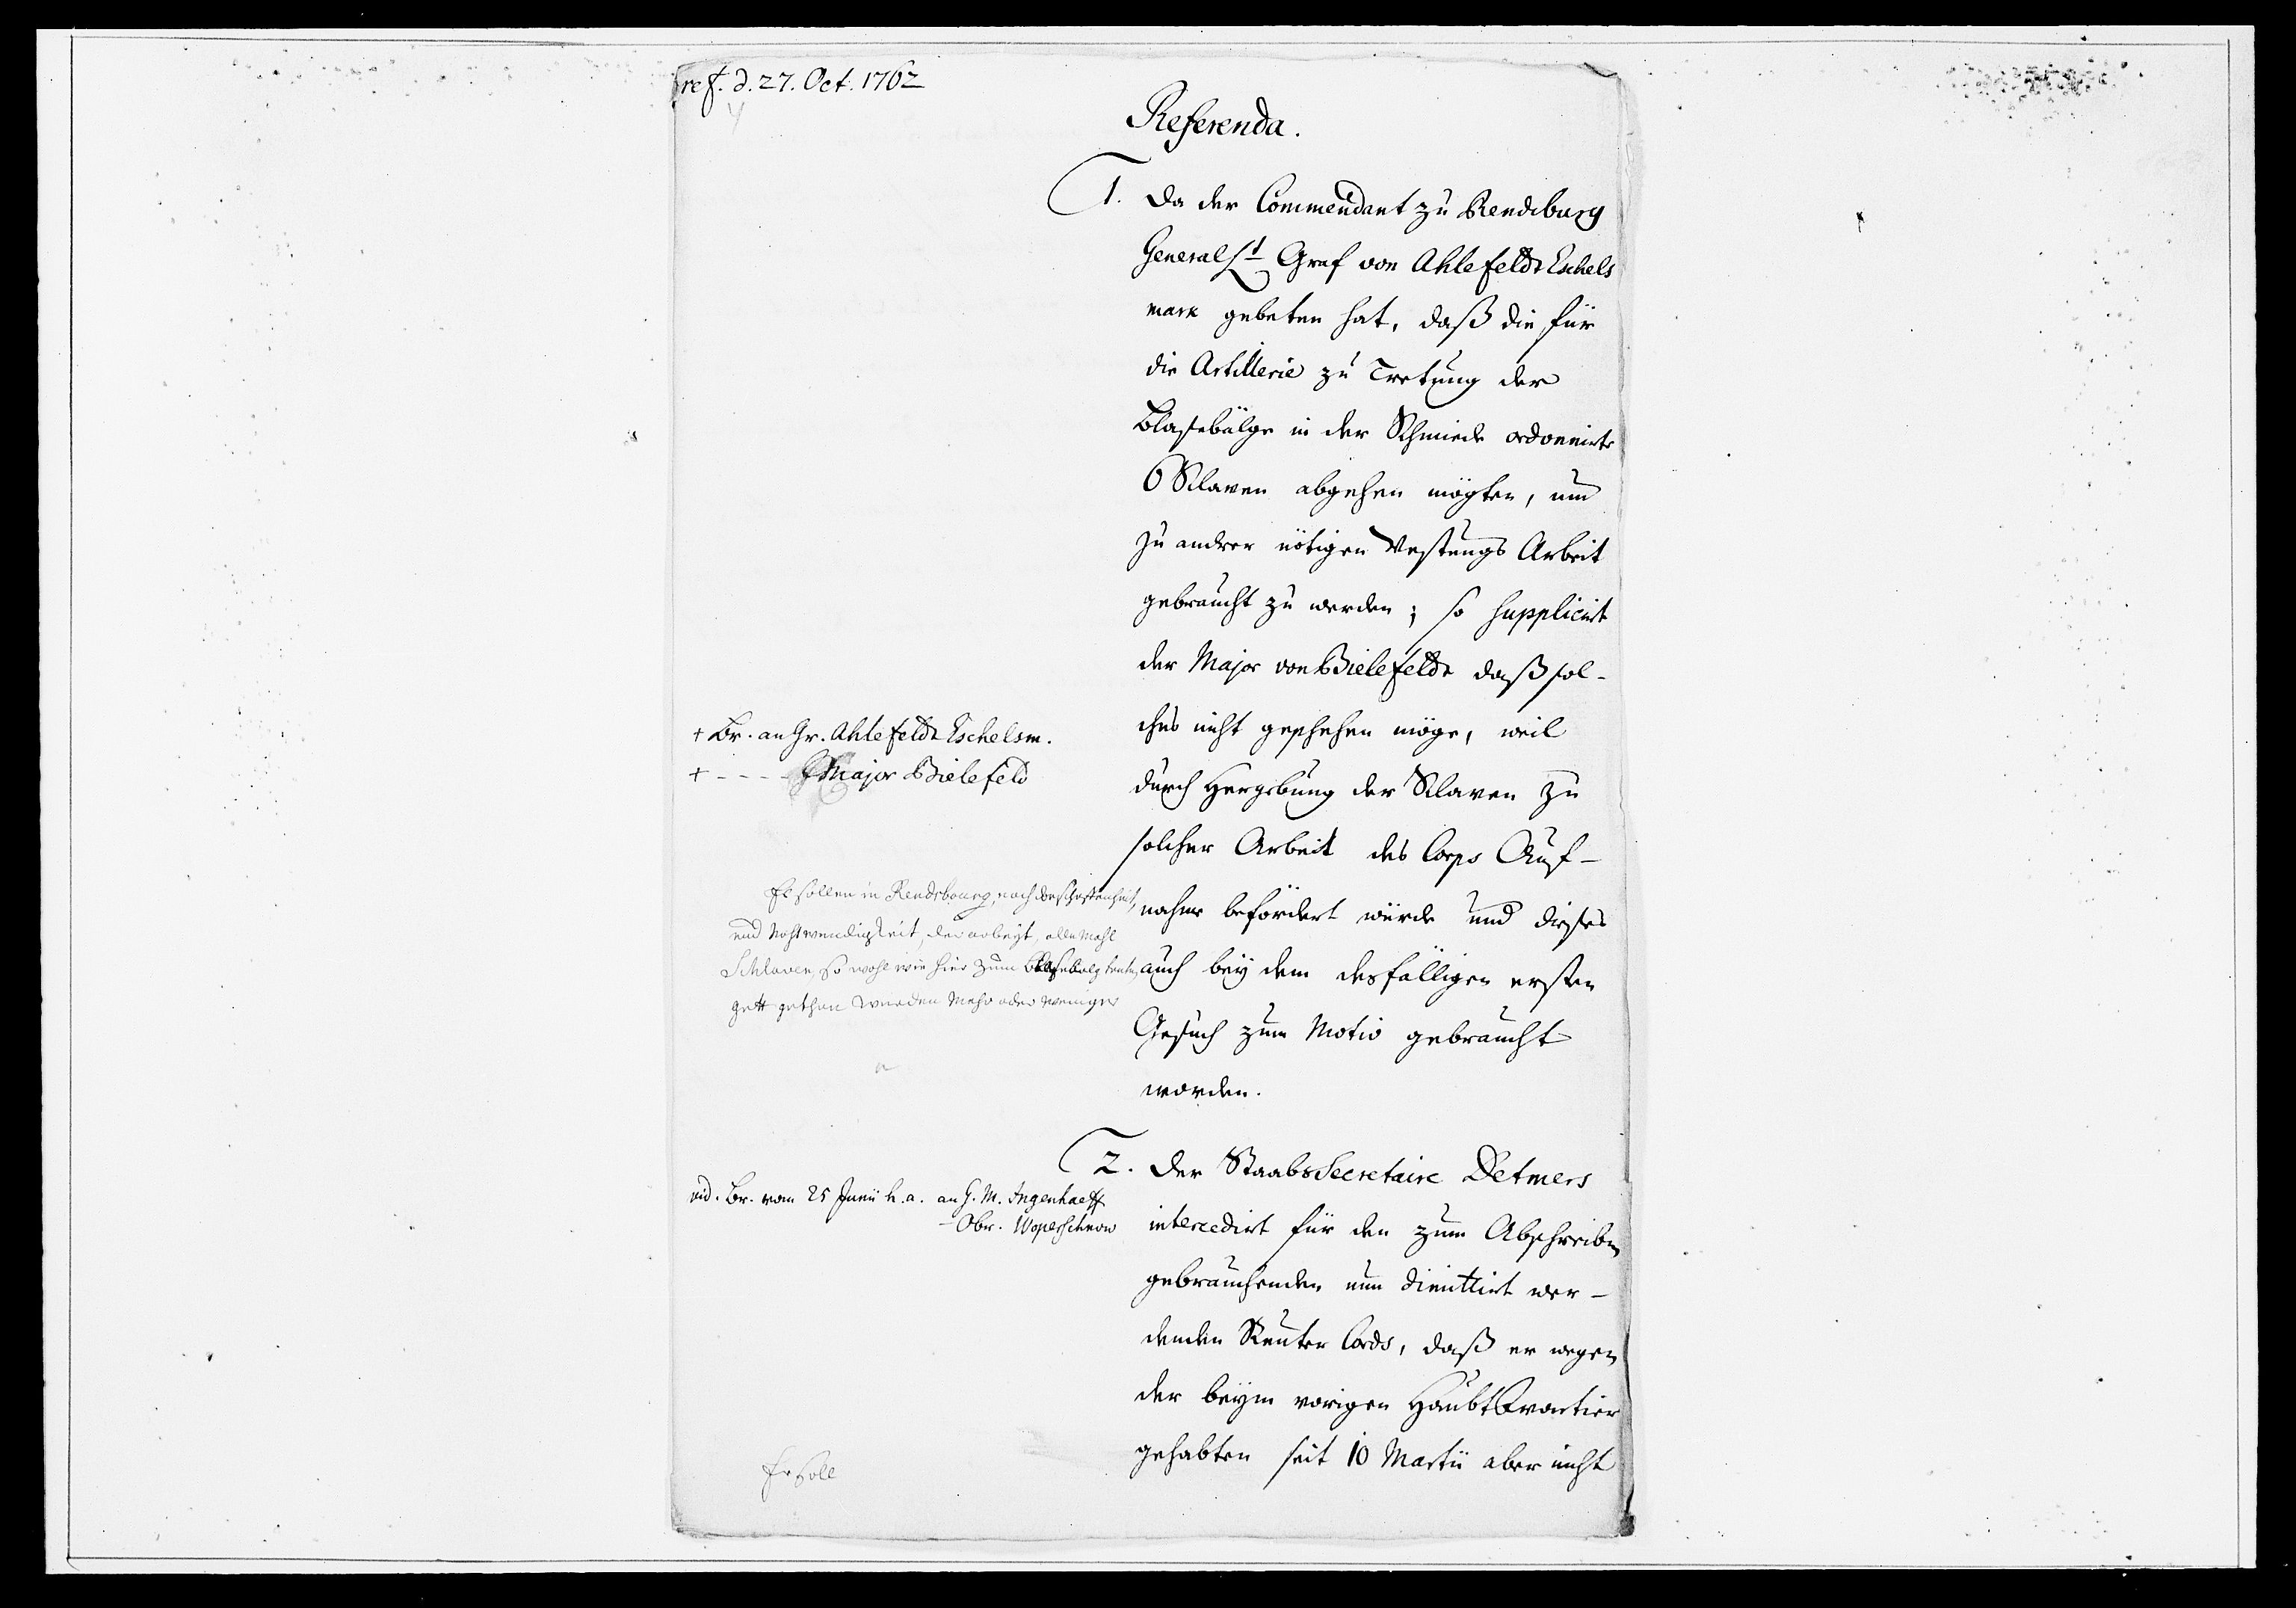 ref. d. 27. Oct. 1762
Referenda.
1. Da der Commendant zu Rendsburg
General Lt Graf von Ahlefeldt Eschels
mark gebeten hat, daß die für
die Artillerie zu Tretung der
Blasebälge in der Schmiede ordonnirte
6 Sklaven abgehen mögten, um
zu andrer nötigen Vestungs Arbeit
gebraucht zu werden; so supplicirt
der Major von Bielefeldt daß sol-
ches nicht geschehen möge, weil
durch Hergebung der Sklaven zu
solcher Arbeit des Corps Auf-
nahme befördert würde und dieses
auch bey dem desfälligen ersten
Gesuch zum Motiv gebraucht
worden.
+ Br. an Gr. Ahlefeldt Eschelsm.
+ - - - - Major Bielefeld
Es sollen in Rendsbourg, nach
und Nohtwendigkeit, der arbeyt, alle Mahl
Schlaven, so wohl wie hier zum Blasebalg
gethan werden Mehr oder weniger
2. Der Staabs Secretaire Detmers
intercedirt für den zum Abschreiben
gebrauchenden nun dimittirt wer-
denden Reuter Cords, daß er wegen
der beym vorigen Haubt Quartier
gehabten seit 10 Martii aber nicht
vid. Br. vom 25 Junii h. a. an G. M. Ingenhaeff
- Obr. Woperschnow
Er soll